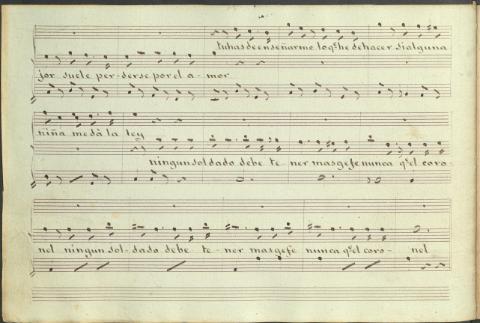 tu has de enseñarme lo qe. he de hacer si alguna
jor suele per-derse por el a-mor
niña me dà la ley
ningun soldado debe te-ner mas gefe nunca qe. el coro-
nel ningun sol-dado debe te-ner mas gefe nunca qe. el coro-nel